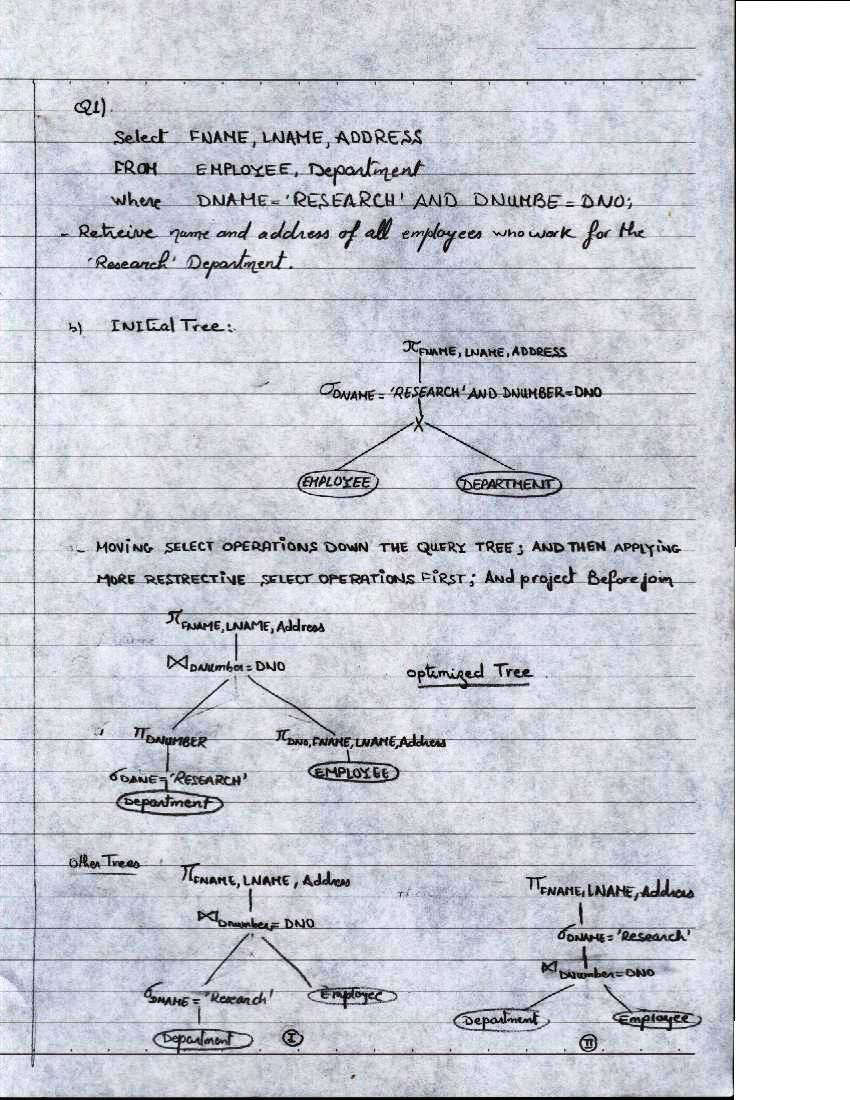 Q1)
Select FNAME, LNAME, ADDRESS
FROM EMPLOYEE, Department
where DNAME='RESEARCH' AND DNUMBE=DNO;
- Retreive name and address of all employees who work for the
'Research' Department.
b) INITial Tree:
π FNAME, LNAME, ADDRESS
σ DNAME = 'RESEARCH' AND DNUMBER=DNO
X
EMPLOYEE DEPARTMENT
- MOVING SELECT OPERATIONS DOWN THE QUERY TREE; AND THEN APPLYING
MORE RESTRECTIVE SELECT OPERATIONS FIRST; And project Before join
π FNAME, LNAME, Address
⋈ DNumber=DNO
optimized Tree
π DNUMBER π DNO, FNAME, LNAME, Address
σ DANE='RESEARCH' EMPLOYEE
Department
Other Trees
π FNAME, LNAME, Address π FNAME, LNAME, Address
⋈ Dnumber= DNO σ DNAME='Research'
⋈ DNumber=DNO
σ DNAME = 'Research' Employee
Department I Department Employee
II